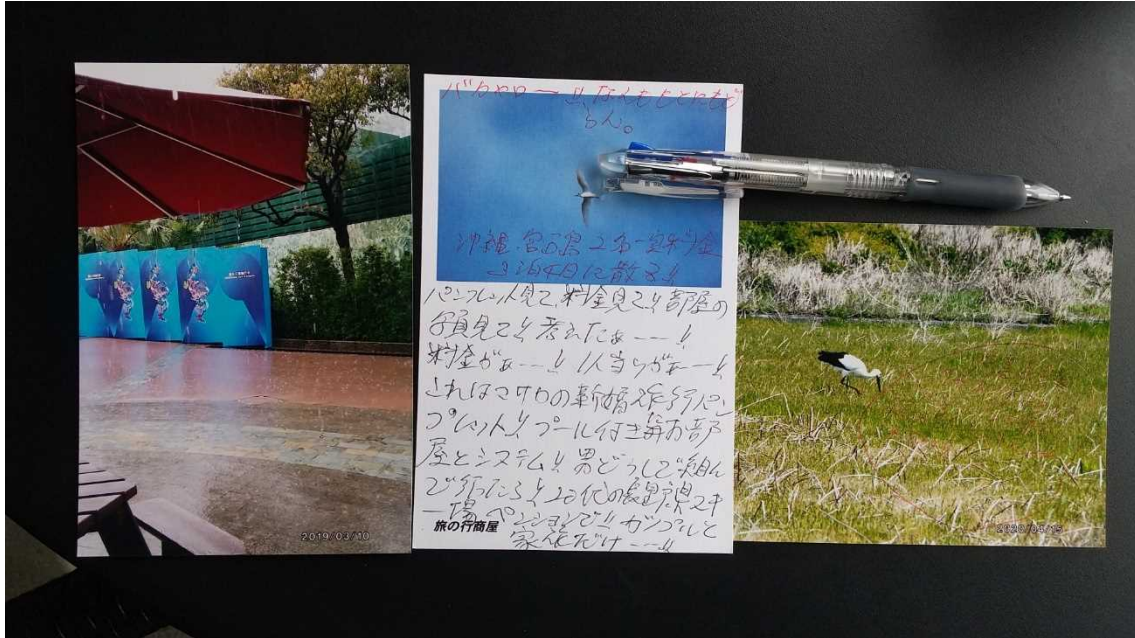 バカヤロー!! なんももとにもど
らん。
沖縄・宮古島2名一室料金
3泊4日に散る!!
パンフレット見て、料金見て!! 部屋の
写真見て!! 考えたぁーー!!
料金がぁーー!! 1人当りがぁーー!!
これはマサロの新婚旅行パン
フレット!! プール付き
屋とシステム!! 男どうしで組ん
で行ったら!! 20代の長野県スキ
ー場ペンションで!! カップルと
家族だけーー!!
旅の行商屋
2019/03/10